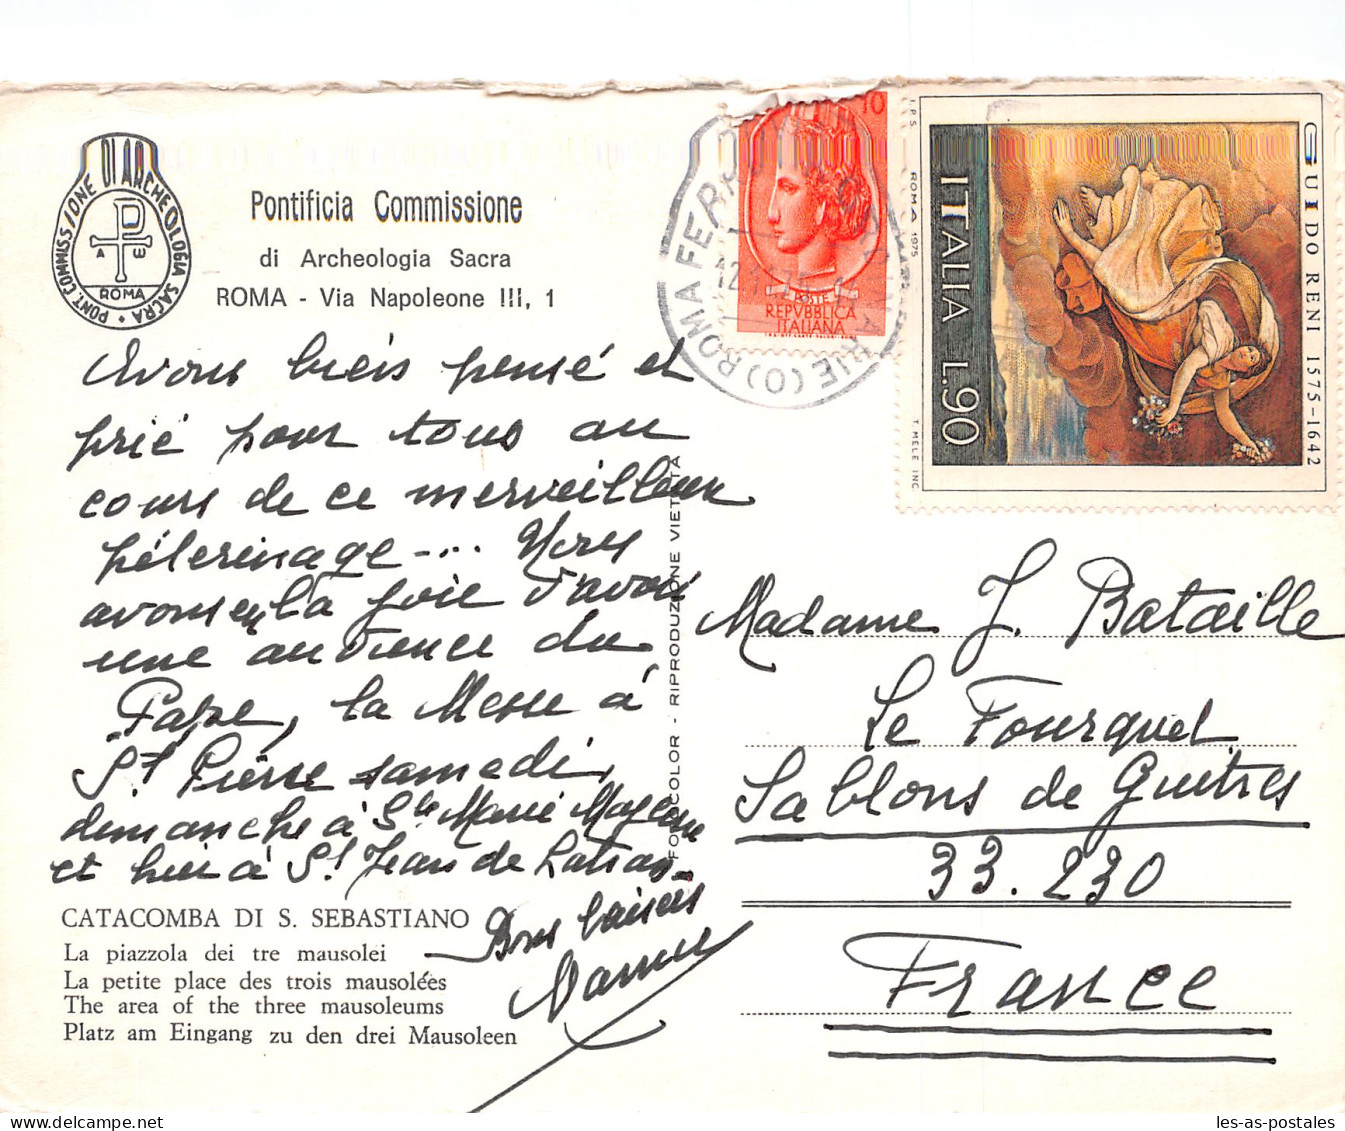 PONT. COMMISSIONE DI ARCHEOLOGIA SACRA
ROMA
Pontificia Commissione
di Archeologia Sacra
ROMA - Via Napoleone III, 1
Avons bien pensé et
prié pour tous au
cours de ce merveilleux
pélerinage.... Nous
avons eu la joie d'avoir
une audience du
Pape, la Messe à
St Pierre samedi,
dimanche à Ste Marie Majeure
et hier à St Jean de Latran.
Bons baisers
CATACOMBA DI S. SEBASTIANO
La piazzola dei tre mausolei
La petite place des trois mausolées
The area of the three mausoleums
Platz am Eingang zu den drei Mausoleen
FOTOCOLOR - RIPRODUZIONE VIETATA
10
POSTE
REPVBBLICA
ITALIANA
ROMA FERROVIA
(O) ROMA
I.P.S. ROMA 1975
T. MELE INC.
ITALIA L.90
GUIDO RENI 1575-1642
Madame J. Bataille
Le Fourquet
Sablons de Guitres
33.230
France
les-as-postales